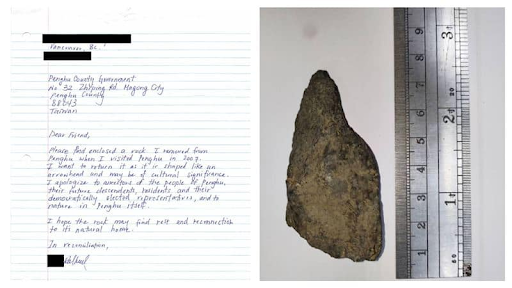 Vancouver, BC.
Penghu County Government
No 32 Zhiping Rd. Magong City
Penghu County
88043
Taiwan
Dear Friend,
Please find enclosed a rock I removed from
Penghu when I visited Penghu in 2007.
I want to return it as it is shaped like an
arrowhead and may be of cultural significance.
I apologize to ancestors of the people of Penghu,
their future descendents, residents and their
democratically elected representatives, and to
nature in Penghu itself.
I hope the rock may find rest and reconnection
to its natural home.
In reconciliation,
9
8
7
6
5
4
3
2
1
3
2
1